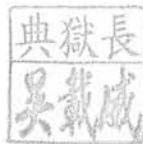 典獄長
吳載威